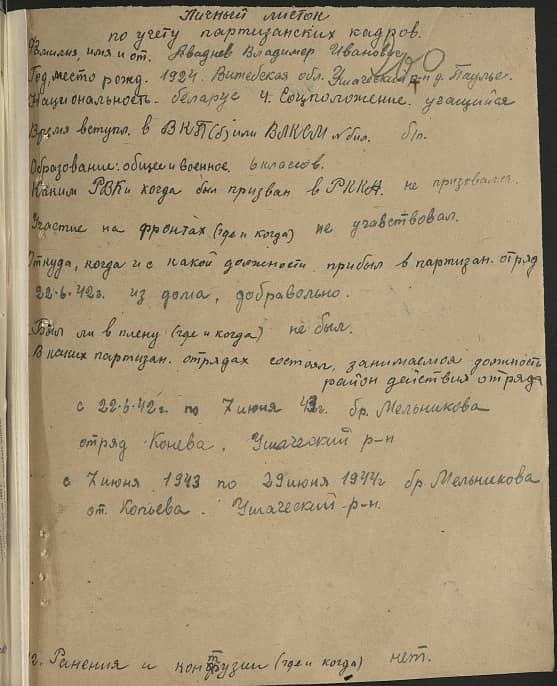 Личный листок
по учету партизанских кадров.
Фамилия, имя и от. Аваднев Владимер Иванович
Год, место рожд. 1924. Витебская обл. Ушаческий р-н д. Паулье.
Национальность. беларус 4. Соц положение. учащийся
Время вступл. в ВКП(б) или ВЛКСМ № бил. б/п.
Образование: общее и военное. 6 классов.
Каким РВК и когда был призван в РККА. не призовался.
Участие на фронтах (где и когда) не учавствовал.
Откуда, когда и с какой должности прибыл в партизан. отряд
22.6.42г. из дома, добравольно.
Был ли в плену (где и когда) не был.
В каких партизан. отрядах состоял, занимаемая должность
район действия отряда
с 22.6.42г. по 7 июня 43г. бр. Мельникова
отряд Конева. Ушаческий р-н
с 7 июня 1943 по 29 июня 1944г бр. Мельникова
от. Копьева. Ушаческий р-н.
Ранения и контузии (где и когда) нет.